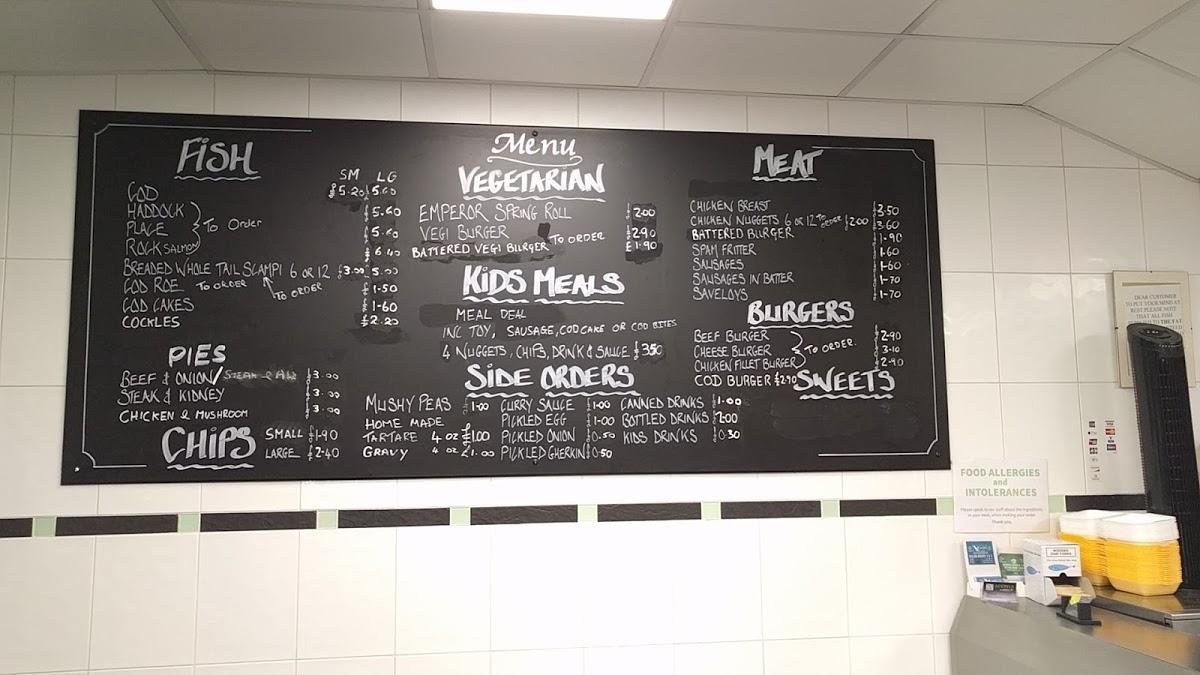 Menu
FISH
SM LG
COD £5.20 £5.60
HADDOCK £5.60
PLACE } To Order £5.60
ROCK SALMON £6.40
BREADED WHOLE TAIL SCAMPI 6 OR 12 £3.00 £5.00
TO ORDER
COD ROE TO ORDER £1.50
COD CAKES £1-60
COCKLES £2.20
PIES
BEEF & ONION/ STEAK & ALE £3.00
STEAK & KIDNEY £3.00
CHICKEN & MUSHROOM £3.00
CHIPS
SMALL £1-90
LARGE £2-40
VEGETARIAN
EMPEROR SPRING ROLL £2.00
VEGI BURGER £2.90
BATTERED VEGI BURGER TO ORDER £1.90
KIDS MEALS
MEAL DEAL
INC TOY, SAUSAGE, COD CAKE OR COD BITES
4 NUGGETS, CHIPS, DRINK & SAUCE £3.50
SIDE ORDERS
MUSHY PEAS £1.00
HOME MADE
TARTARE 4 OZ £1.00
GRAVY 4 OZ £1.00
CURRY SAUCE £1.00
PICKLED EGG £1-00
PICKLED ONION £0.50
PICKLED GHERKIN £0.50
CANNED DRINKS £1.00
BOTTLED DRINKS £2.00
KIDS DRINKS £0.30
MEAT
CHICKEN BREAST £3.50
CHICKEN NUGGETS 6 OR 12 TO ORDER £2.00 £3.60
BATTERED BURGER £1.90
SPAM FRITTER £1.60
SAUSAGES £1-60
SAUSAGES IN BATTER £1-70
SAVELOYS £1-70
BURGERS
BEEF BURGER £2.90
CHEESE BURGER } TO ORDER. £3.10
CHICKEN FILLET BURGER £2.90
COD BURGER £2.90
SWEETS
DEAR CUSTOMER
TO PUT YOUR MIND AT
REST PLEASE NOTE
THAT ALL FISH
FOOD ALLERGIES
and
INTOLERANCES
Please speak to our staff about the ingredients
in your meal, when making your order.
Thank you.